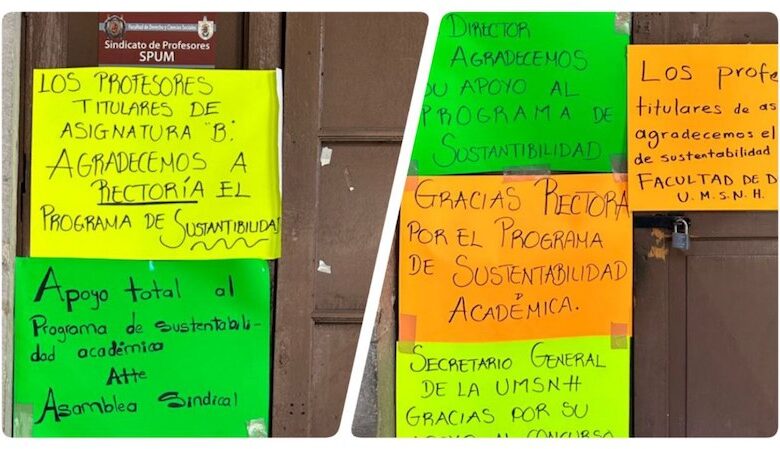 Facultad de Derecho y Ciencias Sociales
Sindicato de Profesores
SPUM
LOS PROFESORES
TITULARES DE
ASIGNATURA "B"
AGRADECEMOS A
RECTORÍA EL
PROGRAMA DE SUSTANTIBILIDAD
Apoyo total al
Programa de sustentabili-
dad académica
Atte
Asamblea Sindical
DIRECTOR
AGRADECEMOS
SU APOYO AL
PROGRAMA DE
SUSTANTIBILIDAD
GRACIAS RECTORA
POR EL PROGRAMA
DE SUSTENTABILIDAD
ACADÉMICA.
SECRETARIO GENERAL
DE LA UMSNH
GRACIAS POR SU
APOYO AL CONCURSO
Los profe
titulares de as
agradecemos el
de sustentabilidad
FACULTAD DE D
U.M.S.N.H.